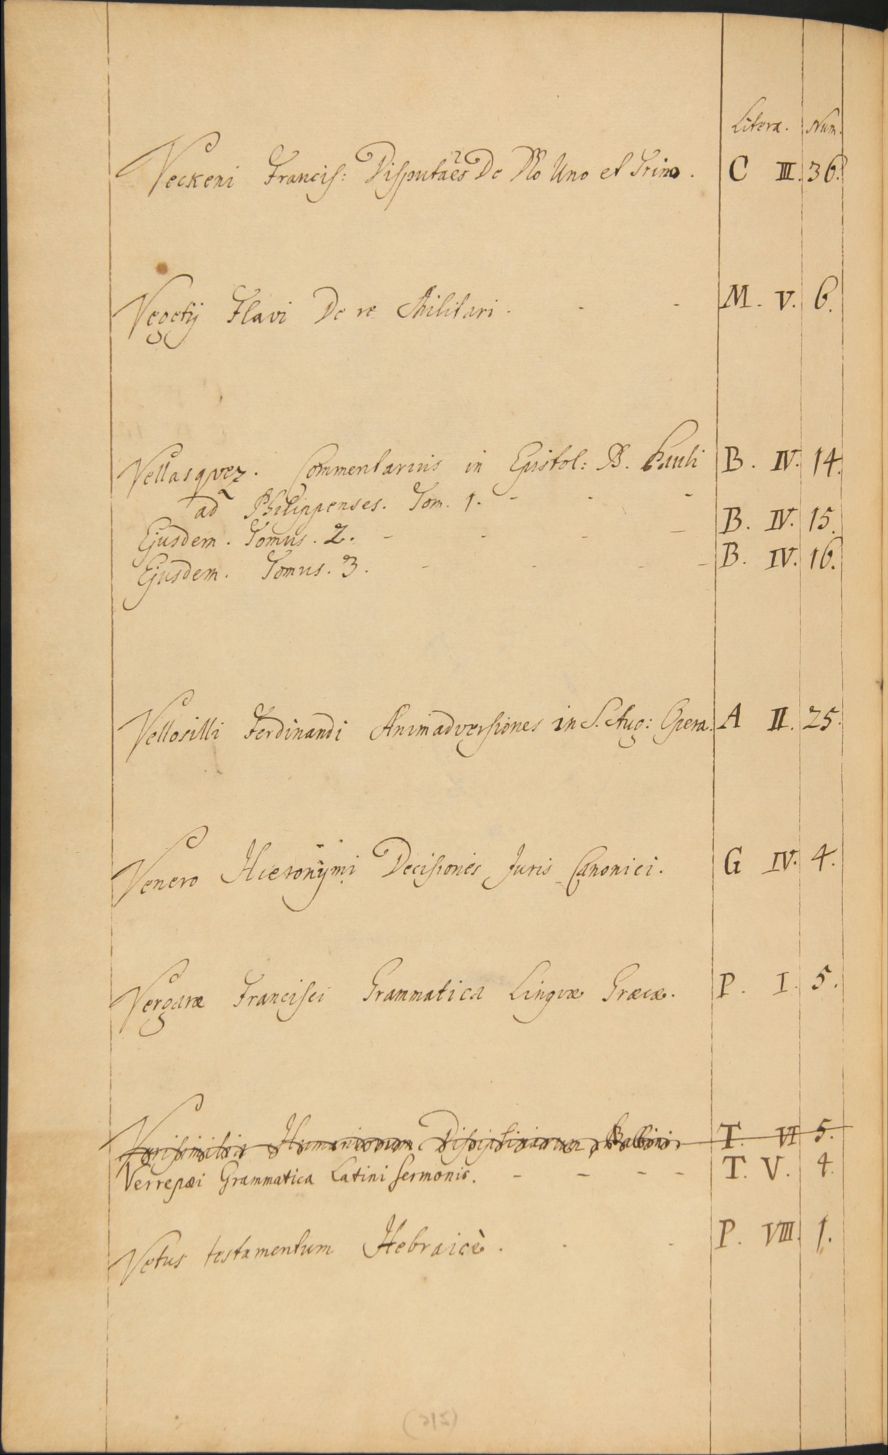 Litera. Num.
Veckeni Francis: Disputães De Dõ Uno et Trino. C III. 36.
Vegetij Flavi De re Militari. - - M. V. 6.
Vellasqvez. Commentarius in Epistol: B. Pauli B. IV. 14.
ad Philippenses. Tom. 1. - - -
Ejusdem. Tomus. 2. - - - - B. IV. 15.
Ejusdem. Tomus. 3. - - - - B. IV. 16.
Vellosilli Ferdinandi Animadversiones in S. Aug: Opera. A II. 25.
Venero Hieronÿmi Decisiones Juris Canonici. G IV. 4.
Vergaræ Francisci Grammatica Lingvæ Græcæ. P. I. 5.
Verisimilia Humaniorum Disciplinarum Balbini. T. VI 5.
Verrepæi Grammatica Latini sermonis. - - - - T. V. 4
Vetus testamentum Hebraicè. - - P. VIII. 1.